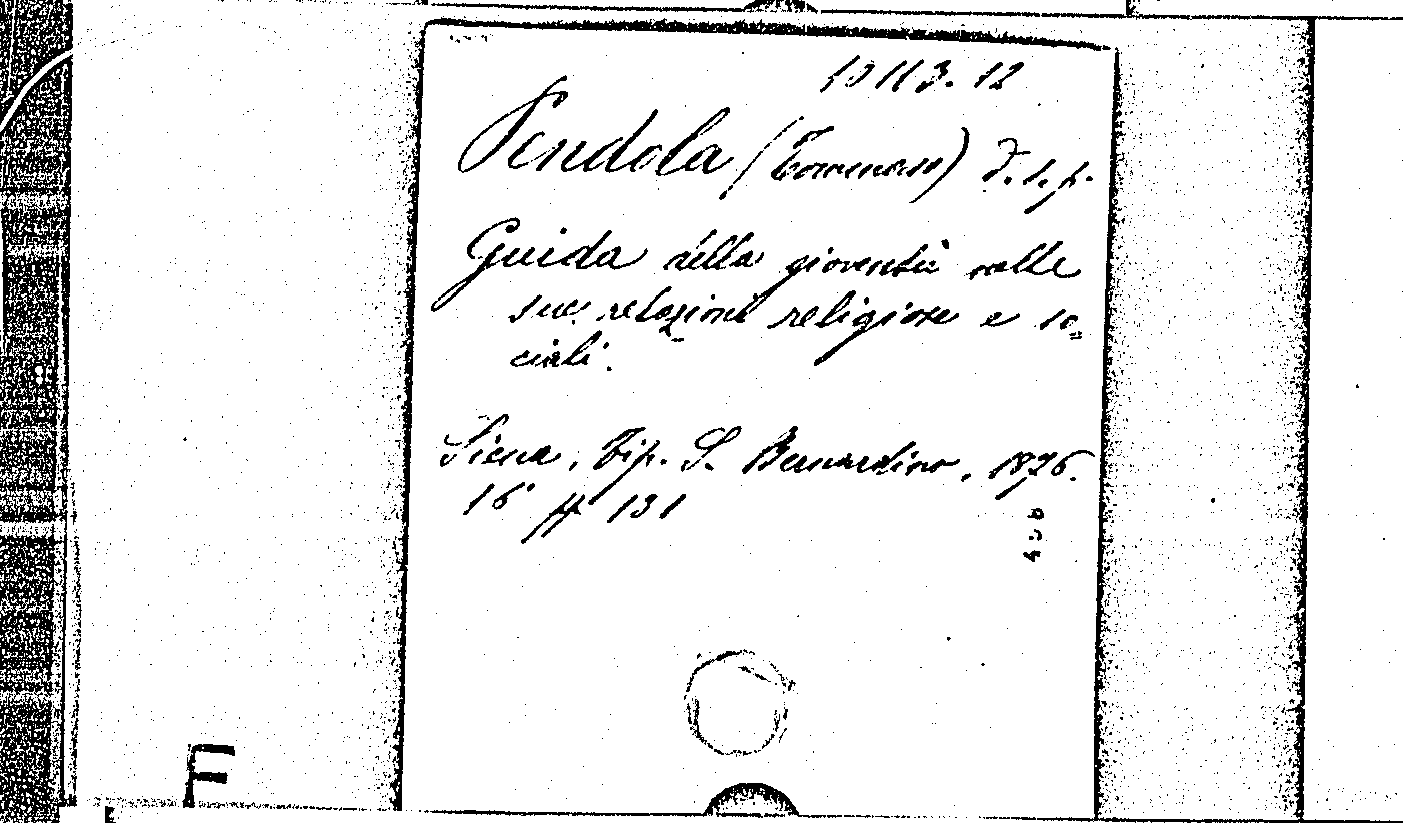 10113.12
Pendola (Tommaso) d. s. p.
Guida della gioventù nelle
sue relazioni religiose e so=
ciali.
Siena, Tip. S. Bernardino, 1876.
16° pp 131
F